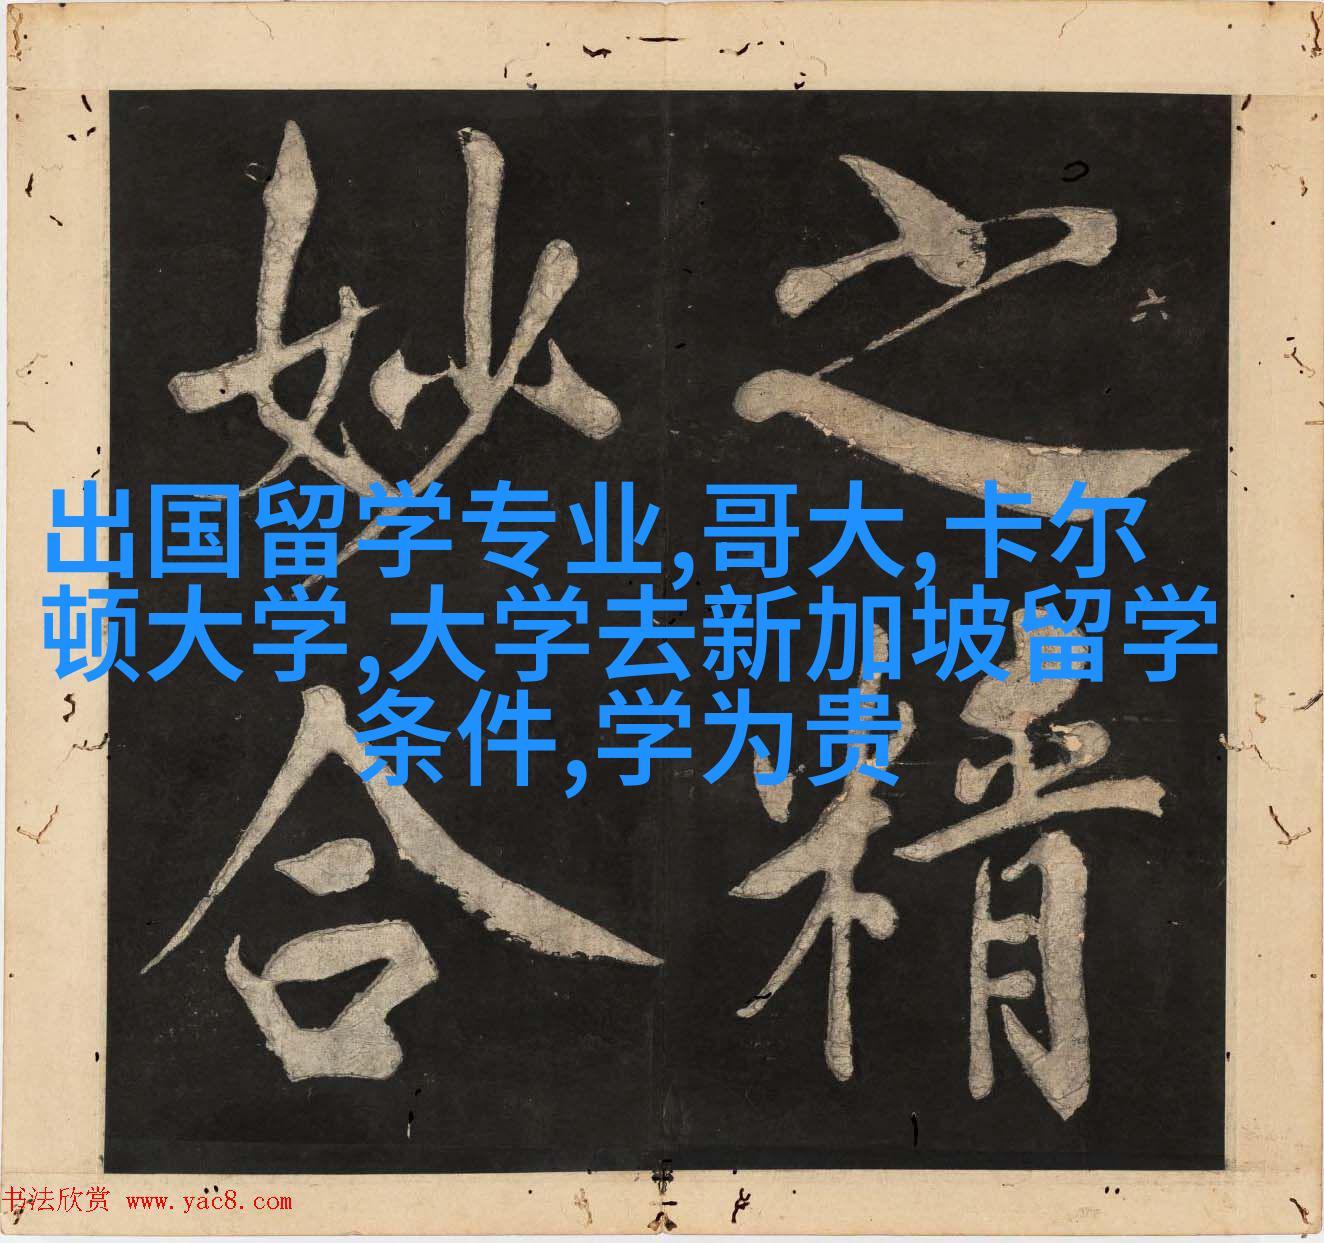 之精
妙合
六
出国留学专业,哥大,卡尔
顿大学,大学去新加坡留学
条件,学为贵
书法欣赏 www.yac8.com